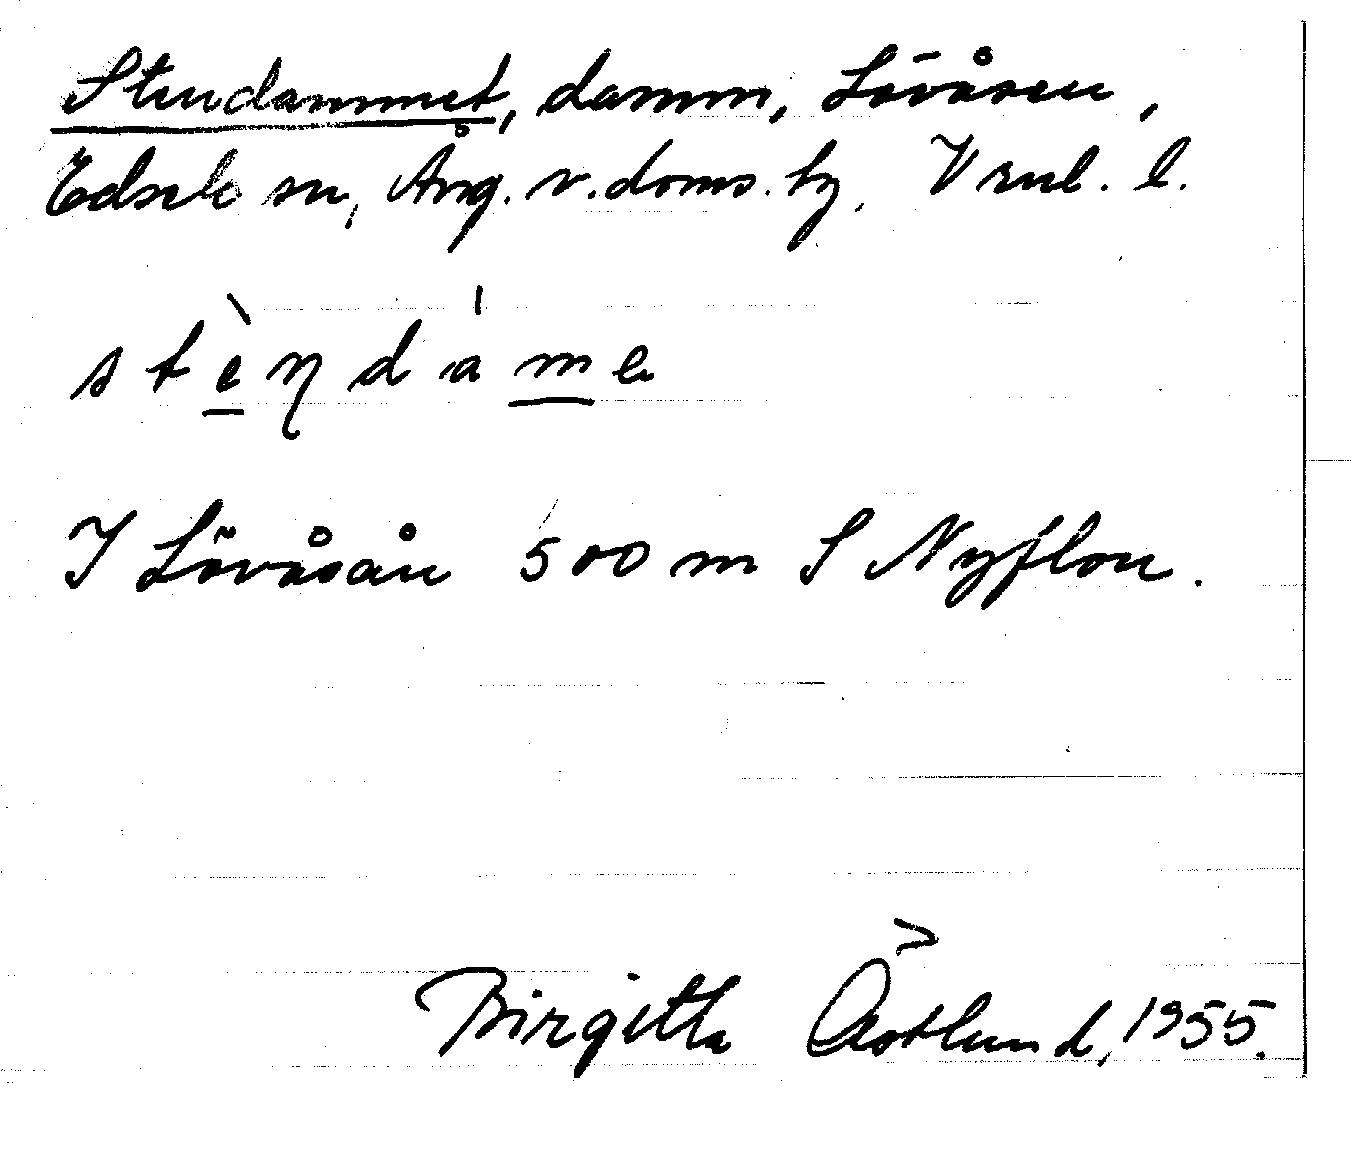 Stendammet, damm, Lövåsen,
Edsele sn, Ång. v. doms. hg. Vrul. l.
stèndáme
I Lövåsån 500 m S Nyflon.
Birgitta Östlund, 1955.